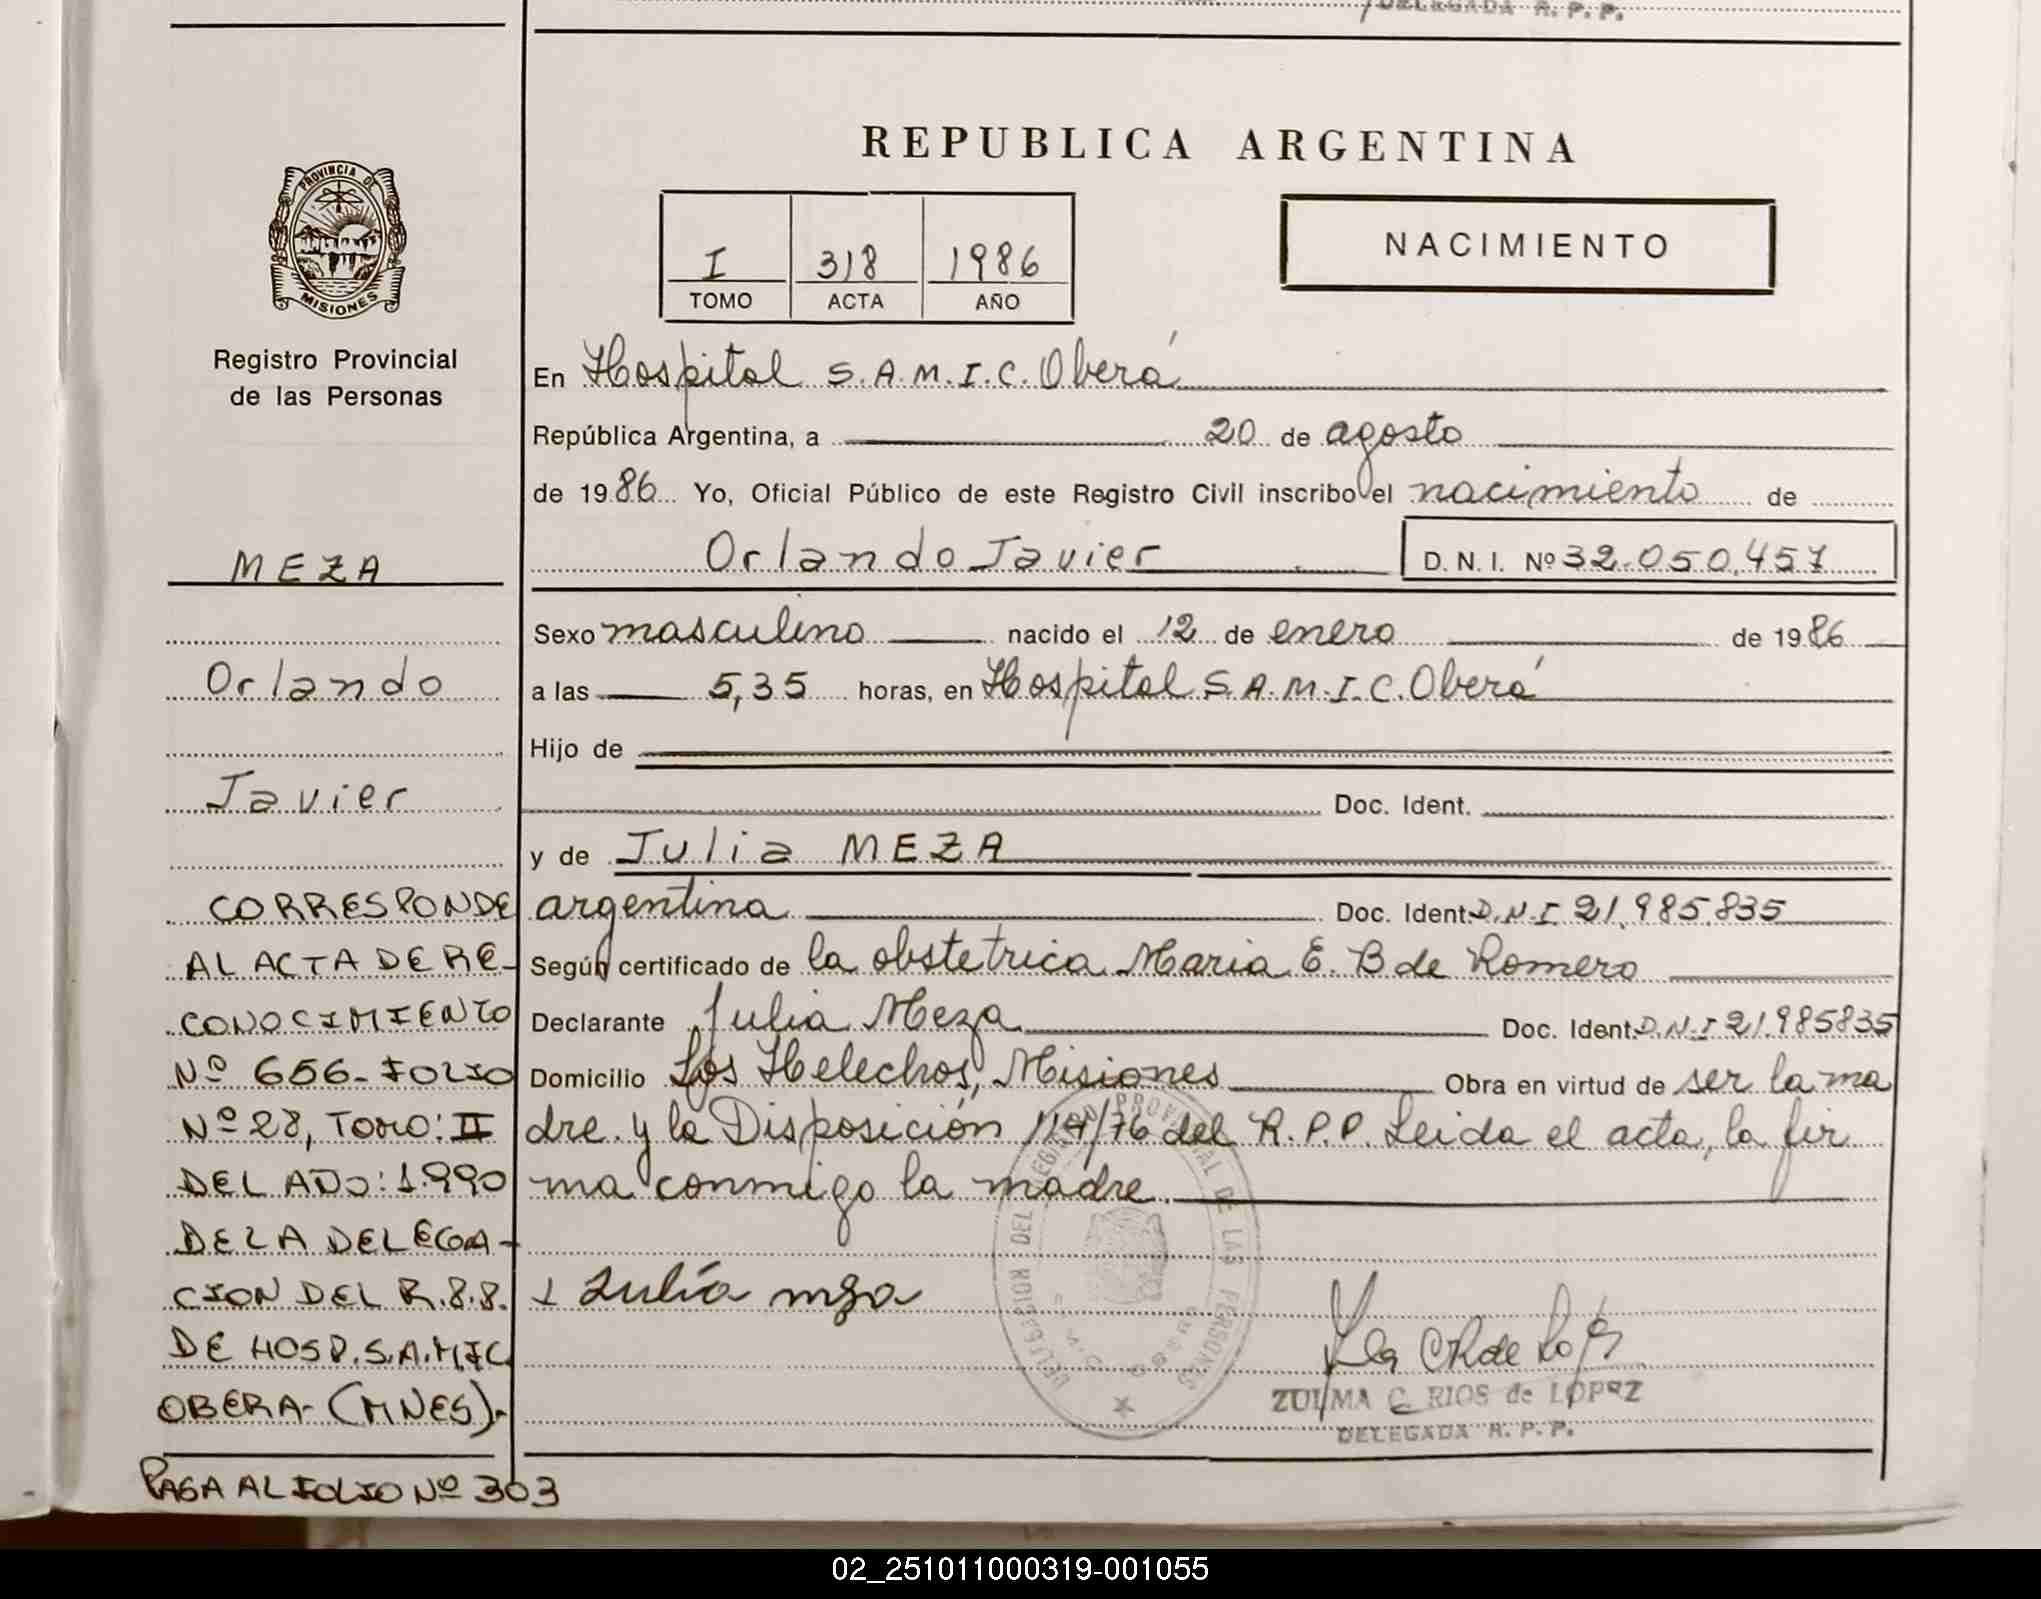 DELEGADA R. P. P.
REPUBLICA ARGENTINA
PROVINCIA DE
MISIONES
Registro Provincial
de las Personas
I 318 1986
TOMO ACTA AÑO
NACIMIENTO
En Hospital S.A.M.I.C. Oberá
República Argentina, a 20 de agosto
de 1986 Yo, Oficial Público de este Registro Civil inscribo el nacimiento de
Orlando Javier D. N. I. Nº 32.050.457
Sexo masculino nacido el 12 de enero de 1986
a las 5,35 horas, en Hospital S.A.M.I.C. Oberá
Hijo de
Doc. Ident.
y de Julia MEZA
argentina Doc. Ident. D.N.I 21.985.835
Según certificado de la obstetrica Maria E. B de Romero
Declarante Julia Meza Doc. Ident. D.N.I 21.985835
Domicilio Los Helechos, Misiones Obra en virtud de ser la ma
dre y la Disposición /76 del R.P.P. Leida el acta, la fir
ma conmigo la madre
Julia mza
ZULMA C. RIOS de LOPEZ
DELEGADA R. P. P.
DELEGACION DEL REGISTRO PROVINCIAL DE LAS PERSONAS
MEZA
Orlando
Javier
CORRESPONDE
AL ACTA DE RE-
CONOCIMIENTO
Nº 656-FOLIO
Nº 28, TOMO: II
DEL AÑO: 1.990
DE LA DELEGA-
CION DEL R.P.P.
DE HOSP. S.A.MIC
OBERA-(MNES)-
PASA AL FOLIO Nº 303
02_251011000319-001055